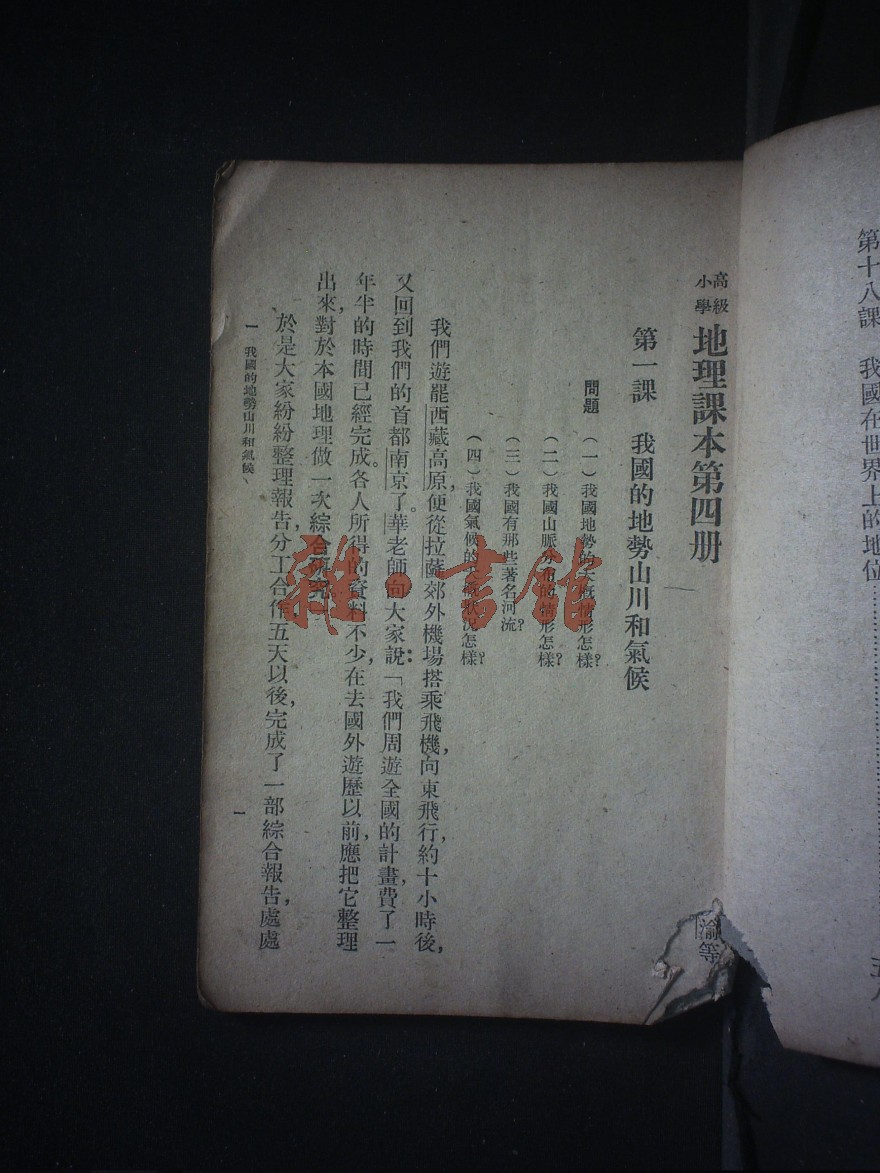 第十八課　我國在世界上的地位
高級小學
地理課本第四册
渝等
第一課　我國的地勢山川和氣候
問題　(一)我國地勢的大概情形怎樣?
(二)我國山脈分布的情形怎樣?
(三)我國有那些著名河流?
(四)我國氣候的大概狀況怎樣?
我們遊罷西藏高原,便從拉薩郊外機場搭乘飛機,向東飛行,約十小時後,
又回到我們的首都南京了。華老師向大家說:「我們周遊全國的計畫,費了一
年半的時間已經完成。各人所得的資料不少,在去國外遊歷以前,應把它整理
出來,對於本國地理做一次綜合研究
於是大家紛紛整理報告,分工合作,五天以後,完成了一部綜合報告,處處
一　我國的地勢山川和氣候
一
雜·書館